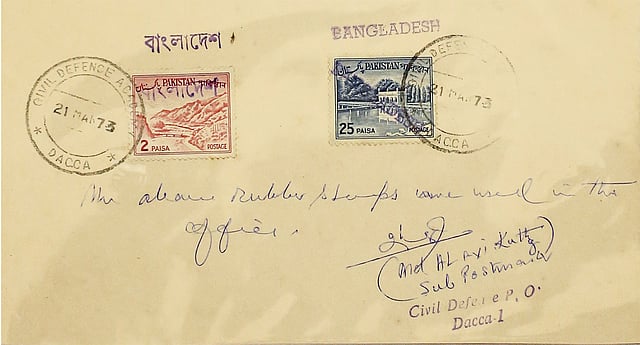 বাংলাদেশ
BANGLADESH
CIVIL DEFENCE
21 MAR 73
DACCA
PAKISTAN পাকিস্তান
বাংলাদেশ
2 PAISA POSTAGE
PAKISTAN পাকিস্তান
25 PAISA POSTAGE
CIVIL DEFENCE
21 MAR 73
The above rubber stamps were used in the
office.
Sub Postmaster
Civil Defence P. O.
Dacca-1